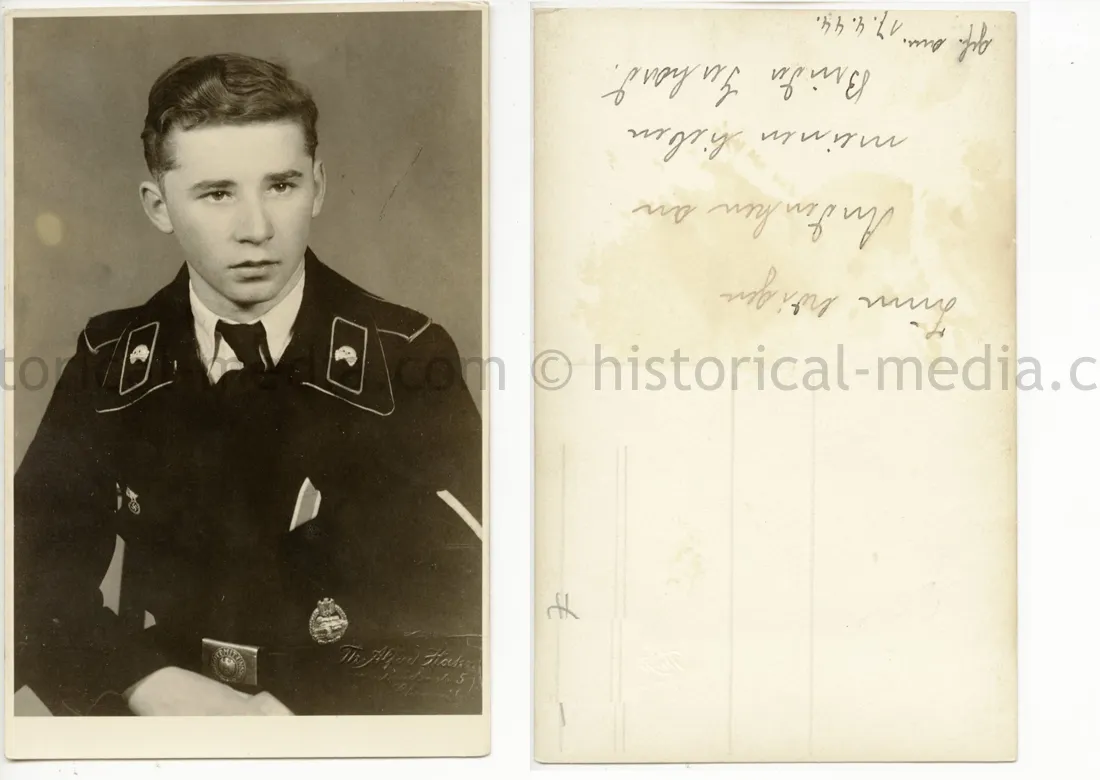 torical-media.com © historical-media.c
Alfred
Zum ewigen
Andenken an
meinen lieben
Bruder Gerhard.
gef. am. 17.4.44.